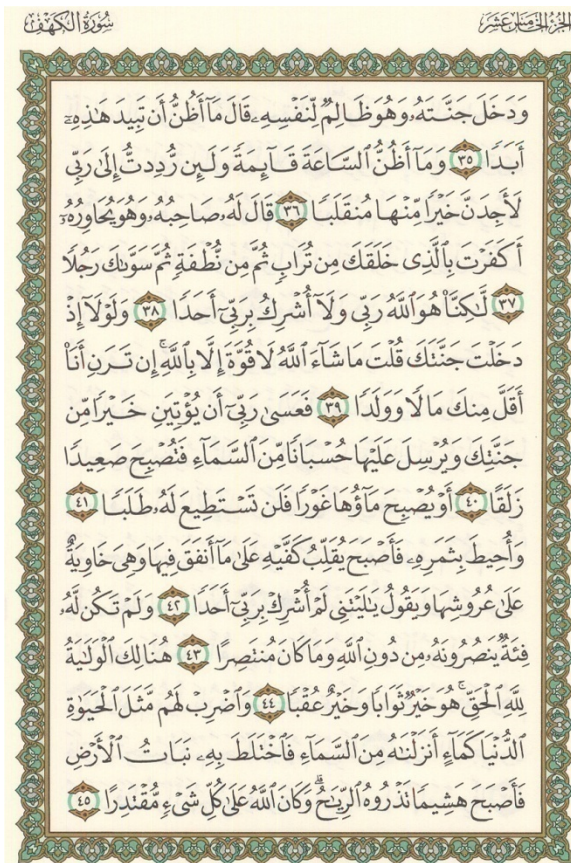 الجزء الخامس عشر
سورة الكهف
وَدَخَلَ جَنَّتَهُۥ وَهُوَ ظَالِمٌ لِّنَفْسِهِۦ قَالَ مَآ أَظُنُّ أَن تَبِيدَ هَٰذِهِۦٓ
أَبَدًا ٣٥ وَمَآ أَظُنُّ ٱلسَّاعَةَ قَآئِمَةً وَلَئِن رُّدِدتُّ إِلَىٰ رَبِّى
لَأَجِدَنَّ خَيْرًا مِّنْهَا مُنقَلَبًا ٣٦ قَالَ لَهُۥ صَاحِبُهُۥ وَهُوَ يُحَاوِرُهُۥٓ
أَكَفَرْتَ بِٱلَّذِى خَلَقَكَ مِن تُرَابٍ ثُمَّ مِن نُّطْفَةٍ ثُمَّ سَوَّىٰكَ رَجُلًا
٣٧ لَّٰكِنَّا۠ هُوَ ٱللَّهُ رَبِّى وَلَآ أُشْرِكُ بِرَبِّىٓ أَحَدًا ٣٨ وَلَوْلَآ إِذْ
دَخَلْتَ جَنَّتَكَ قُلْتَ مَا شَآءَ ٱللَّهُ لَا قُوَّةَ إِلَّا بِٱللَّهِ ۚ إِن تَرَنِ أَنَا۠
أَقَلَّ مِنكَ مَالًا وَوَلَدًا ٣٩ فَعَسَىٰ رَبِّىٓ أَن يُؤْتِيَنِ خَيْرًا مِّن
جَنَّتِكَ وَيُرْسِلَ عَلَيْهَا حُسْبَانًا مِّنَ ٱلسَّمَآءِ فَتُصْبِحَ صَعِيدًا
زَلَقًا ٤٠ أَوْ يُصْبِحَ مَآؤُهَا غَوْرًا فَلَن تَسْتَطِيعَ لَهُۥ طَلَبًا ٤١
وَأُحِيطَ بِثَمَرِهِۦ فَأَصْبَحَ يُقَلِّبُ كَفَّيْهِ عَلَىٰ مَآ أَنفَقَ فِيهَا وَهِىَ خَاوِيَةٌ
عَلَىٰ عُرُوشِهَا وَيَقُولُ يَٰلَيْتَنِى لَمْ أُشْرِكْ بِرَبِّىٓ أَحَدًا ٤٢ وَلَمْ تَكُن لَّهُۥ
فِئَةٌ يَنصُرُونَهُۥ مِن دُونِ ٱللَّهِ وَمَا كَانَ مُنتَصِرًا ٤٣ هُنَالِكَ ٱلْوَلَٰيَةُ
لِلَّهِ ٱلْحَقِّ ۚ هُوَ خَيْرٌ ثَوَابًا وَخَيْرٌ عُقْبًا ٤٤ وَٱضْرِبْ لَهُم مَّثَلَ ٱلْحَيَوٰةِ
ٱلدُّنْيَا كَمَآءٍ أَنزَلْنَٰهُ مِنَ ٱلسَّمَآءِ فَٱخْتَلَطَ بِهِۦ نَبَاتُ ٱلْأَرْضِ
فَأَصْبَحَ هَشِيمًا تَذْرُوهُ ٱلرِّيَٰحُ ۗ وَكَانَ ٱللَّهُ عَلَىٰ كُلِّ شَىْءٍ مُّقْتَدِرًا ٤٥